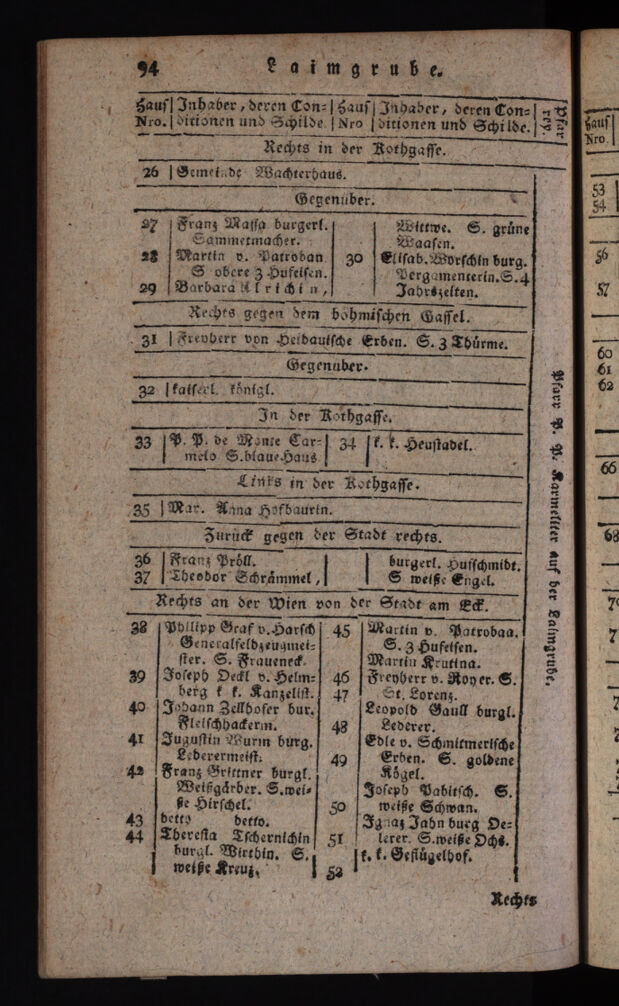 94 Laimgrube.
Haus Nro.
Inhaber, deren Conditionen und Schilde.
Haus Nro
Inhaber, deren Conditionen und Schilde.
Pfarrey.
Rechts in der Kothgasse.
26 Gemeinde Wachterhaus.
Gegenüber.
27 Franz Massa burgerl.
Sammetmacher.
28 Martin v. Patroban
S obere 3 Hufeisen.
29 Barbara Ulrichin,
Wittwe. S. grüne
Waasen.
30 Elisab. Worschin burg.
Pergamenterin. S. 4
Jahrszeiten.
Rechts gegen dem böhmischen Gassel.
31 Freyherr von Heidauische Erben. S. 3 Thürme.
Gegenuber.
32 kaiserl. königl.
In der Kothgasse.
33 P. P. de Monte Car-
melo S. blaue Haus
34 k. k. Heustadel.
Links in der Kothgasse.
35 Mar. Anna Hofbaurin.
Zurück gegen der Stadt rechts.
36 Franz Pröll.
37 Theodor Schrämmel,
burgerl. Hufschmidt.
S weiße Engel.
Rechts an der Wien von der Stadt am Eck.
38 Philipp Graf v. Harsch
Generalfeldzeugmei-
ster. S. Fraueneck.
39 Joseph Deckl v. Helm-
berg k k. Kanzelist.
40 Johann Zellhofer bur.
Fleischhackerm.
41 Augustin Wurm burg.
Lederermeist.
42 Franz Grittner burgl.
Weißgärber. S. wei-
ße Hirschel.
43 detto detto.
44 Theresia Tschernichin
burgl. Wirthin. S.
weiße Kreuz,
45 Martin v. Patroban.
S. 3 Hufeisen.
Martin Krutina.
46 Freyherr v. Royer. S.
47 St. Lorenz.
Leopold Gaull burgl.
48 Lederer.
Edle v. Schmitmerische
49 Erben. S. goldene
Kögel.
Joseph Pabitsch. S.
50 weiße Schwan.
Ignaz Jahn burg Le-
51 lerer. S. weiße Ochs.
52 k. k. Geflügelhof.
Pfarr P. P. Karmeliter auf der Laimgrube.
Rechts
Haus
Nro
53
54
56
57
60
61
62
66